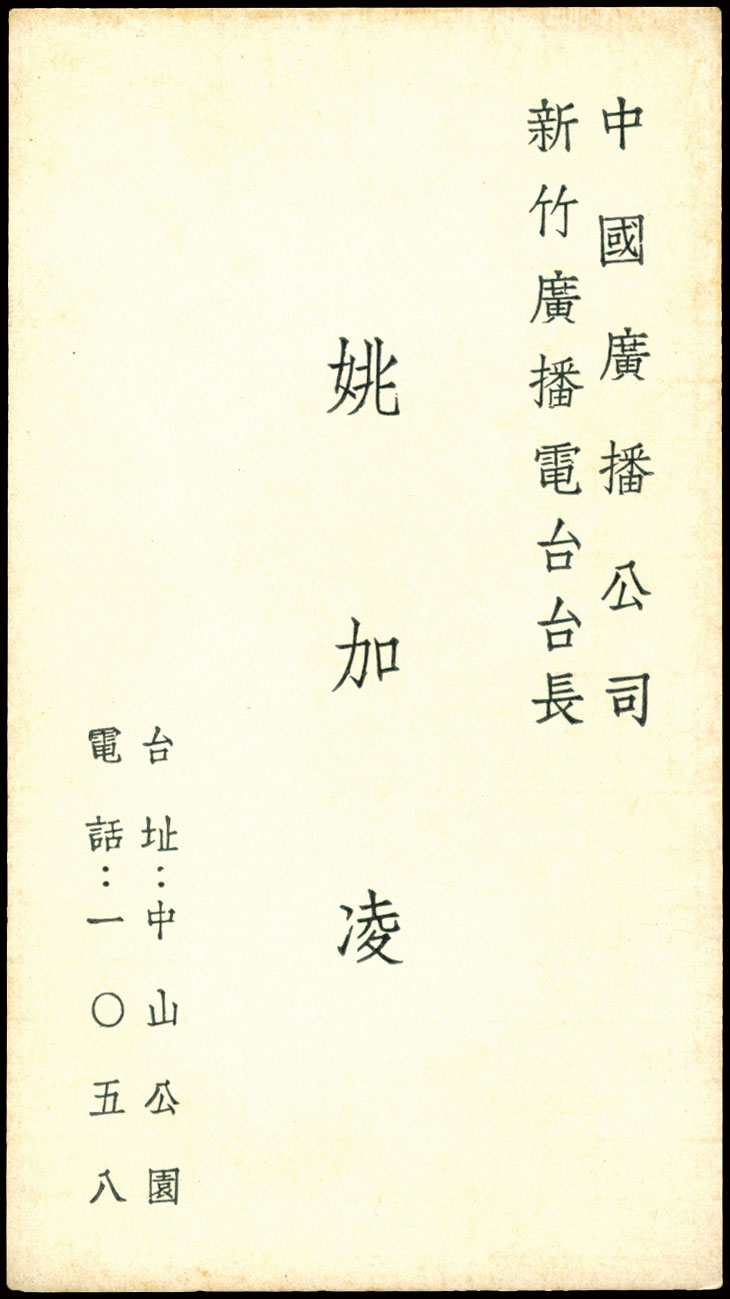 中國廣播公司
新竹廣播電台台長
姚加凌
台址：中山公園
電話：一〇五八